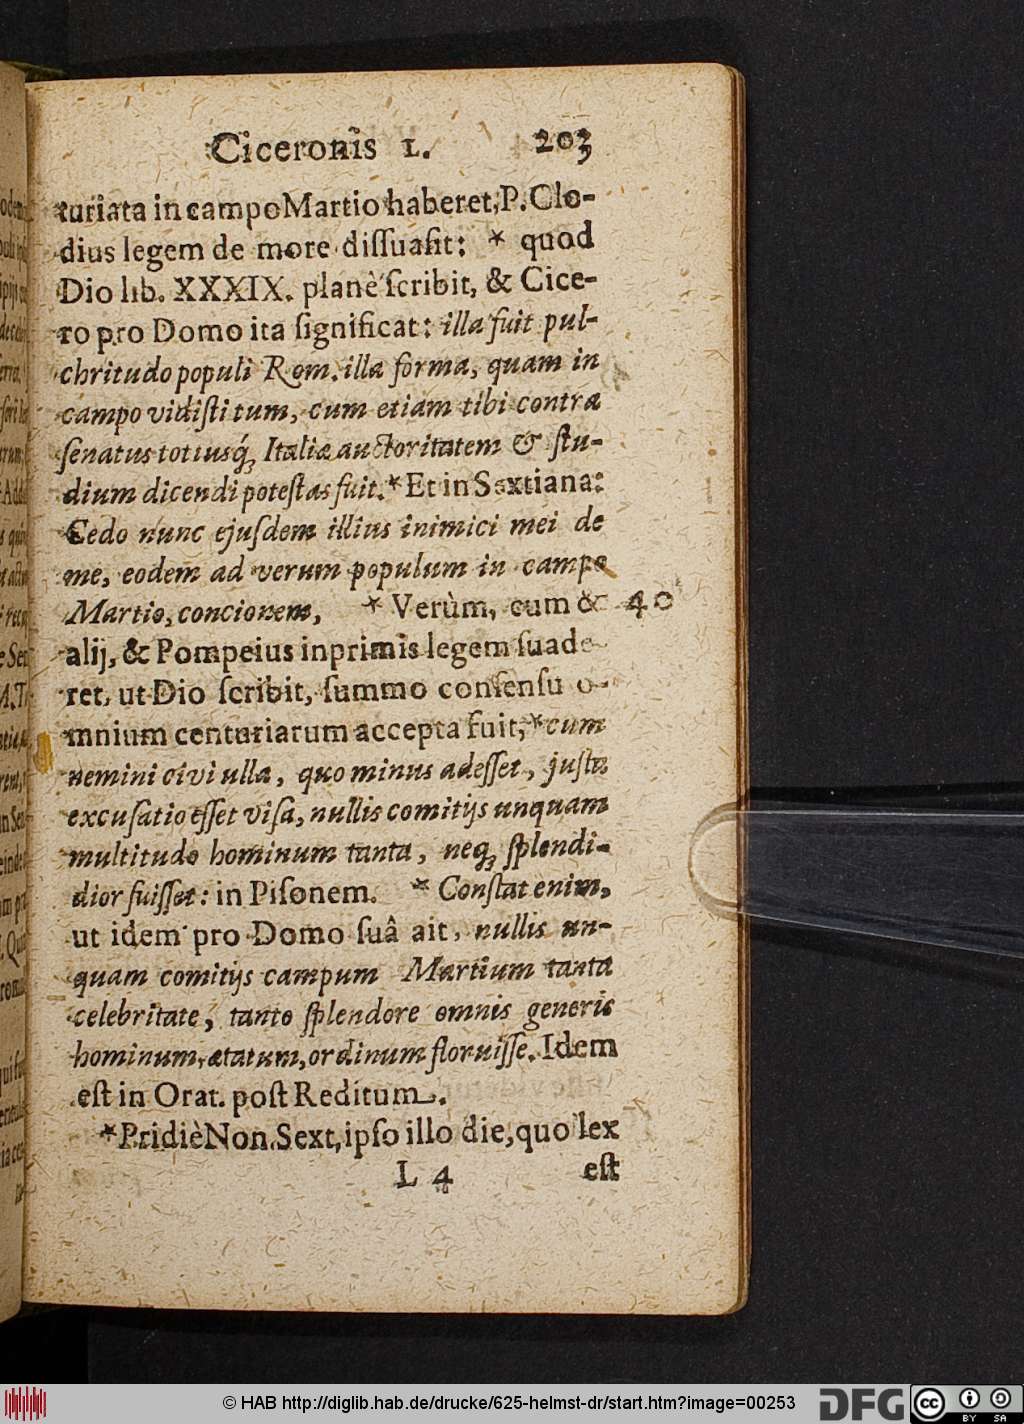 Ciceronis 1. 203
turiata in campo Martio haberet, P. Clo-
dius legem de more dissuasit: * quod
Dio lib. XXXIX. planè scribit, & Cice-
ro pro Domo ita significat: illa fuit pul-
chritudo populi Rom. illa forma, quam in
campo vidisti tum, cum etiam tibi contra
senatus totiusq́; Italiæ auctoritatem & stu-
dium dicendi potestas fuit. * Et in Sextiana:
Cedo nunc ejusdem illius inimici mei de
me, eodem ad verum populum in campo
Martio, concionem, * Verùm, cum & 40
alij, & Pompeius inprimis legem suade-
ret, ut Dio scribit, summo consensu o-
mnium centuriarum accepta fuit, * cum
nemini civi ulla, quo minus adesset, justa
excusatio esset visa, nullis comitijs unquam
multitudo hominum tanta, neq; splendi-
dior fuisset: in Pisonem. * Constat enim,
ut idem pro Domo suâ ait, nullis un-
quam comitijs campum Martium tanta
celebritate, tanto splendore omnis generis
hominum, ætatum, ordinum floruisse. Idem
est in Orat. post Reditum.
* Pridiè Non. Sext, ipso illo die, quo lex
L 4 est
© HAB http://diglib.hab.de/drucke/625-helmst-dr/start.htm?image=00253 DFG cc BY SA